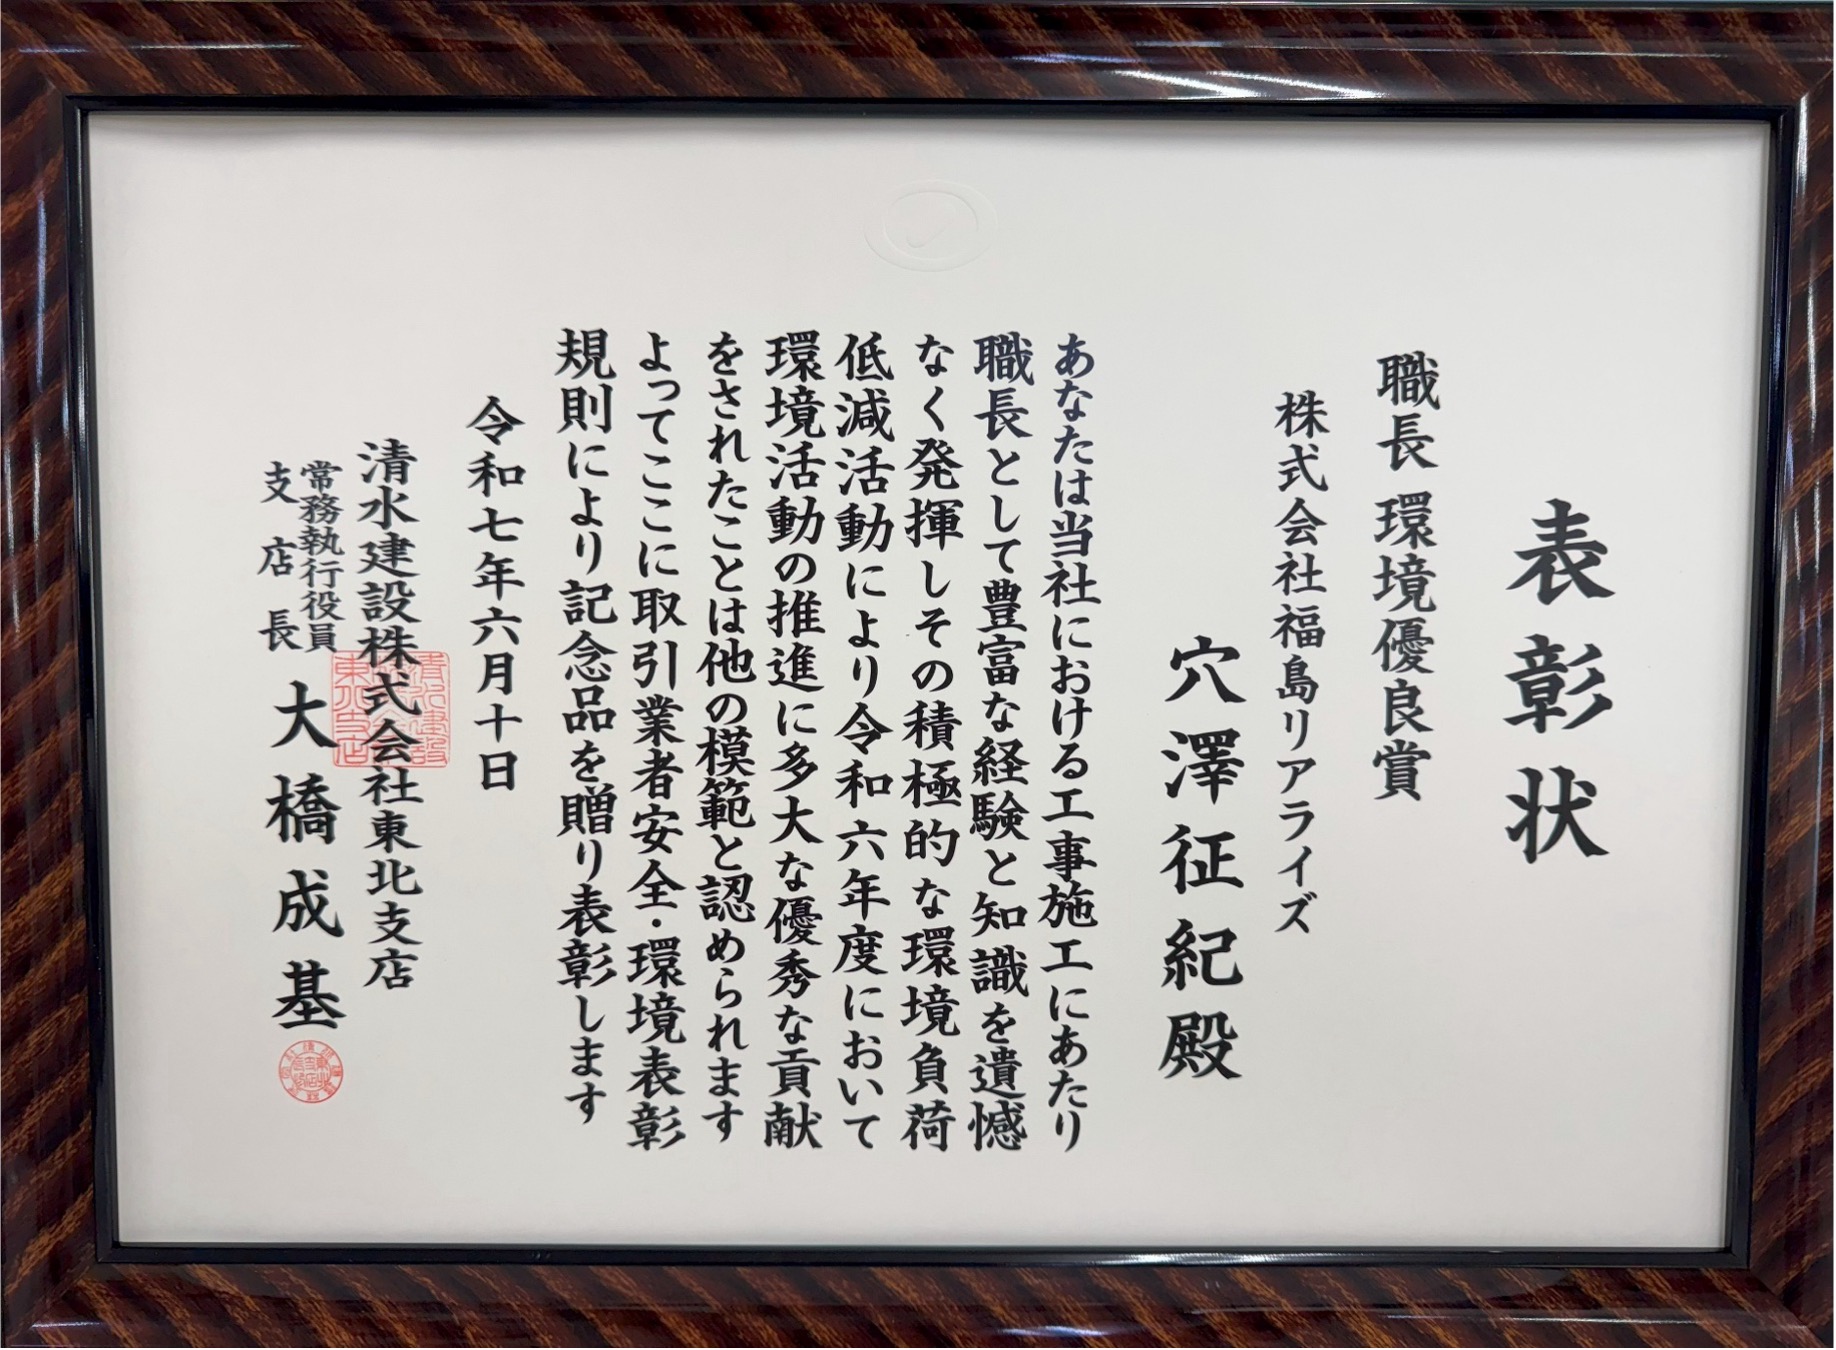 表彰状
職長 環境優良賞
株式会社福島リアライズ
穴澤征紀殿
あなたは当社における工事施工にあたり
職長として豊富な経験と知識を遺憾
なく発揮しその積極的な環境負荷
低減活動により令和六年度において
環境活動の推進に多大な優秀な貢献
をされたことは他の模範と認められます
よってここに取引業者安全・環境表彰
規則により記念品を贈り表彰します
令和七年六月十日
清水建設株式会社東北支店
常務執行役員
支店長
大橋成基